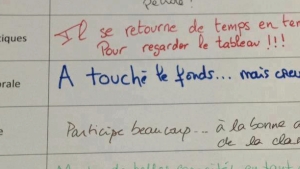 tiques
Il se retourne de temps en tem
Pour regarder le tableau !!!
rale
A touché le fonds... mais creu
e
Participe beaucoup... à la bonne a
de la clas